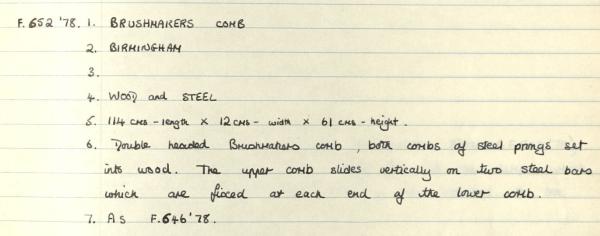 F.652'78. 1. BRUSHMAKERS COMB
2. BIRMINGHAM
3.
4. WOOD and STEEL
5. 114 CMS - length x 12 CMS - width x 61 CMS - height.
6. Double headed Brushmakers comb, both combs of steel prongs set
into wood. The upper comb slides vertically on two steel bars
which are fixed at each end of the lower comb.
7. AS F.646'78.